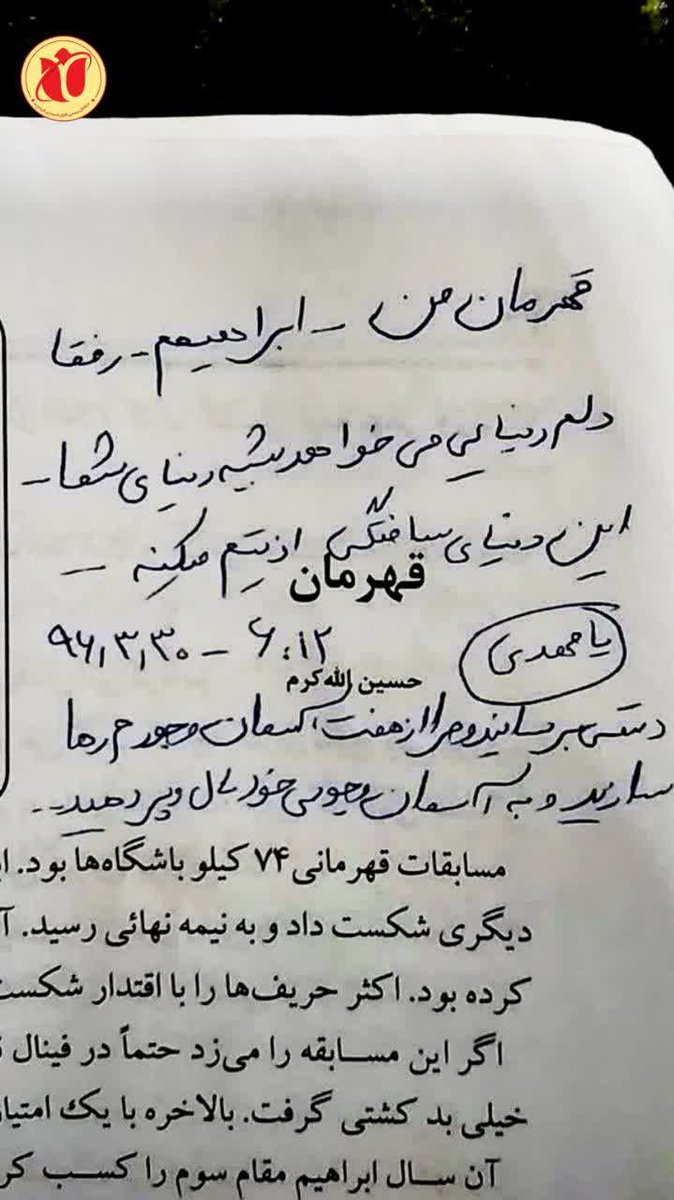 قهرمان من - ابراهیم - رفقا
دلم دنیایی می خواهد شبیه دنیای شما -
این دنیای ساختگی اذیتم میکنه -
قهرمان
یا مهدی
۶:۱۲ - ۹۶/۳/۳۰
حسین الله‌کرم
دستی برسانید و مرا از هفت آسمان وجودم رها
سازید و به آسمان وجودی خود بال و پر دهید..
مسابقات قهرمانی ۷۴ کیلو باشگاه‌ها بود.
دیگری شکست داد و به نیمه نهائی رسید.
کرده بود. اکثر حریف‌ها را با اقتدار شکست
اگر این مسابقه را می‌زد حتماً در فینال
خیلی بد کشتی گرفت. بالاخره با یک امتیا
آن سال ابراهیم مقام سوم را کسب کر